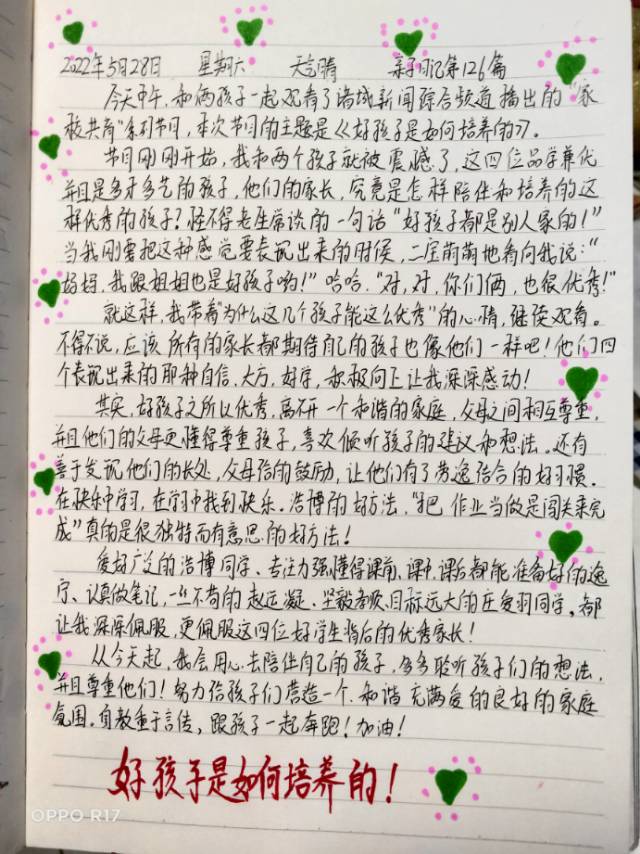 2022年5月28日 星期六 天气晴 亲子日记第126篇
今天中午,和俩孩子一起观看了诸城新闻综合频道播出的“家
校共育”系列节目,本次节目的主题是《好孩子是如何培养的》。
节目刚刚开始,我和两个孩子就被震撼了,这四位品学兼优
并且是多才多艺的孩子,他们的家长,究竟是怎样陪伴和培养的这
样优秀的孩子?怪不得老生常谈的一句话“好孩子都是别人家的!”
当我刚要把这种感觉要表现出来的时候,二宝萌萌地看向我说:“
妈妈,我跟姐姐也是好孩子哟!”哈哈.“对,对,你们俩,也很优秀!”
就这样,我带着“为什么这几个孩子能这么优秀”的心情,继续观看。
不得不说,应该所有的家长都期待自己的孩子也像他们一样吧!他们四
个表现出来的那种自信、大方、好学,积极向上让我深深感动!
其实,好孩子之所以优秀,离不开一个和谐的家庭,父母之间相互尊重,
并且他们的父母更懂得尊重孩子,喜欢倾听孩子的建议和想法。还有
善于发现他们的长处,父母给的鼓励,让他们有了劳逸结合的好习惯。
在快乐中学习,在学习中找到快乐。浩博的好方法,“把作业当做是闯关来完
成”真的是很独特而有意思的好方法!
爱好广泛的浩博同学、专注力强,懂得课前、课中、课后都能准备好的逸
宁、认真做笔记,一丝不苟的赵运凝、坚毅孝顺、目标远大的庄爱羽同学。都
让我深深佩服,更佩服这四位好学生背后的优秀家长!
从今天起,我会用心去陪伴自己的孩子,多多聆听孩子们的想法,
并且尊重他们!努力给孩子们营造一个和谐充满爱的良好的家庭
氛围。身教重于言传,跟孩子一起奔跑!加油!
好孩子是如何培养的!
OPPO R17